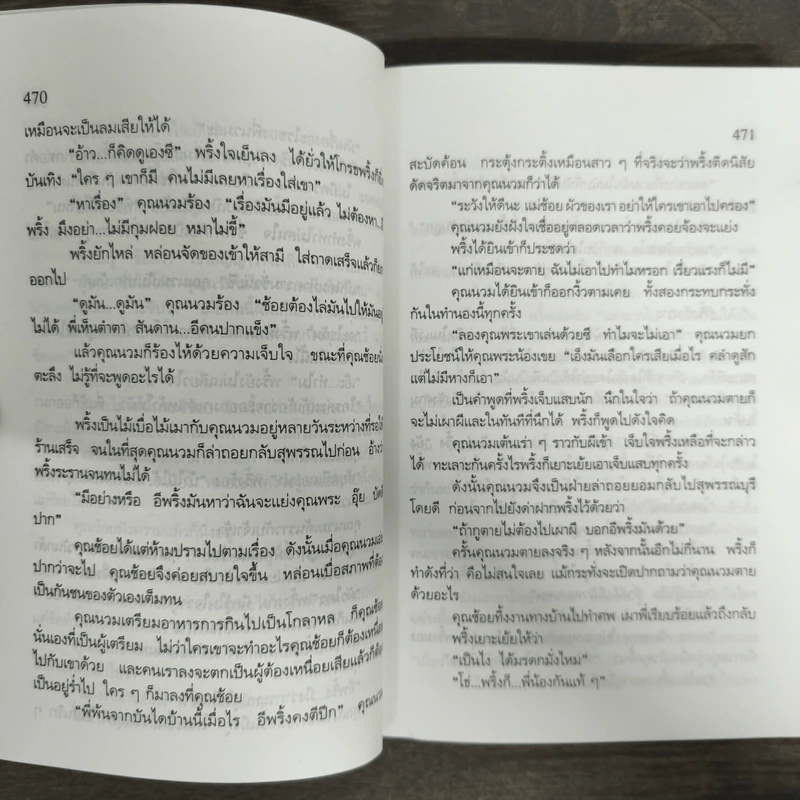 470
เหมือนจะเป็นลมเสียให้ได้
“อ้าว...ก็คิดดูเองซี” พริ้งใจเย็นลง ได้ยั่วให้โกรธพริ้งก็
บันเทิง “ใคร ๆ เขาก็มี คนไม่มีเลยหาเรื่องใส่เขา”
“หาเรื่อง” คุณนวมร้อง “เรื่องมันมีอยู่แล้ว ไม่ต้องหา...
พริ้ง มึงอย่า...ไม่มีกุมฝอย หมาไม่ขี้”
พริ้งยักไหล่ หล่อนจัดของเช้าให้สามี ใส่ถาดเสร็จแล้วก็
ออกไป
“ดูมัน...ดูมัน” คุณนวมร้อง “ช้อยต้องไล่มันไปให้
ไม่ได้ พี่เห็นตำตา สันดาน...อีคนปากแข็ง”
แล้วคุณนวมก็ร้องไห้ด้วยความเจ็บใจ ขณะที่คุณช้อย
ตะลึง ไม่รู้ที่จะพูดอะไรได้
พริ้งเป็นไม้เบื่อไม้เมากับคุณนวมอยู่หลายวันระหว่างที่รอ
ร้านเสร็จ จนในที่สุดคุณนวมก็ล่าถอยกลับสุพรรณไปก่อน
พริ้งระรานจนทนไม่ได้
“มีอย่างหรือ อีพริ้งมันหาว่าฉันจะแย่งคุณพระ อุ๊ย
ปาก”
คุณช้อยได้แต่ห้ามปรามไปตามเรื่อง ดังนั้นเมื่อคุณนวม
ปากว่าจะไป คุณช้อยจึงค่อยสบายใจขึ้น หล่อนเบื่อสภาพที่
เป็นกันชนของตัวเองเต็มทน
คุณนวมเตรียมอาหารการกินไปเป็นโกลาหล ก็คุณช้อย
นั่นเองที่เป็นผู้เตรียม ไม่ว่าใครเขาจะทำอะไรคุณช้อยก็ต้อง
ไปกับเขาด้วย และคนเราลงจะตกเป็นผู้ต้องเหนื่อยเสียแล้วก็
เป็นอยู่ร่ำไป ใคร ๆ ก็มาลงที่คุณช้อย
“พี่พ้นจากบันไดบ้านนี้เมื่อไร อีพริ้งคงตีปีก”
471
สะบัดค้อน กระตุ้งกระติ้งเหมือนสาว ๆ ที่จริงจะว่าพริ้งติดนิสัย
ดัดจริตมาจากคุณนวมก็ว่าได้
“ระวังให้ดีนะ แม่ช้อย ผัวของเรา อย่าให้ใครเขาเอาไปครอง”
คุณนวมยังฝังใจเชื่ออยู่ตลอดเวลาว่าพริ้งคอยจ้องจะแย่ง
พริ้งได้ยินเข้าก็ประชดว่า
“แก่เหมือนจะตาย ฉันไม่เอาไปทำไมหรอก เรี่ยวแรงก็ไม่มี”
คุณนวมได้ยินเข้าก็ออกงิ้วตามเคย ทั้งสองกระทบกระทั่ง
กันในทำนองนี้ทุกครั้ง
“ลองคุณพระเขาเล่นด้วยซี ทำไมจะไม่เอา” คุณนวมยก
ประโยชน์ให้คุณพระน้องเขย “เอ็งมันเลือกใครเสียเมื่อไร คลำดูสัก
แต่ไม่มีหางก็เอา”
เป็นคำพูดที่พริ้งเจ็บแสบนัก นึกในใจว่า ถ้าคุณนวมตายก็
จะไม่เผาผีและในทันทีที่นึกได้ พริ้งก็พูดไปดังใจคิด
คุณนวมเต้นเร่า ๆ ราวกับผีเข้า เจ็บใจพริ้งเหลือที่จะกล่าว
ได้ ทะเลาะกันครั้งไรพริ้งก็เยาะเย้ยเอาเจ็บแสบทุกครั้ง
ดังนั้นคุณนวมจึงเป็นฝ่ายล่าถอยยอมกลับไปสุพรรณบุรี
โดยดี ก่อนจากไปยังด่าฝากพริ้งไว้ด้วยว่า
“ถ้ากูตายไม่ต้องไปเผาผี บอกอีพริ้งมันด้วย”
ครั้นคุณนวมตายลงจริง ๆ หลังจากนั้นอีกไม่กี่นาน พริ้งก็
ทำดังที่ว่า คือไม่สนใจเลย แม้กระทั่งจะเปิดปากถามว่าคุณนวมตาย
ด้วยอะไร
คุณช้อยทิ้งงานทางบ้านไปทำศพ เผาพี่เรียบร้อยแล้วถึงกลับ
พริ้งเยาะเย้ยให้ว่า
“เป็นไง ได้มรดกมั่งไหม”
“โธ่...พริ้งก็...พี่น้องกันแท้ ๆ”